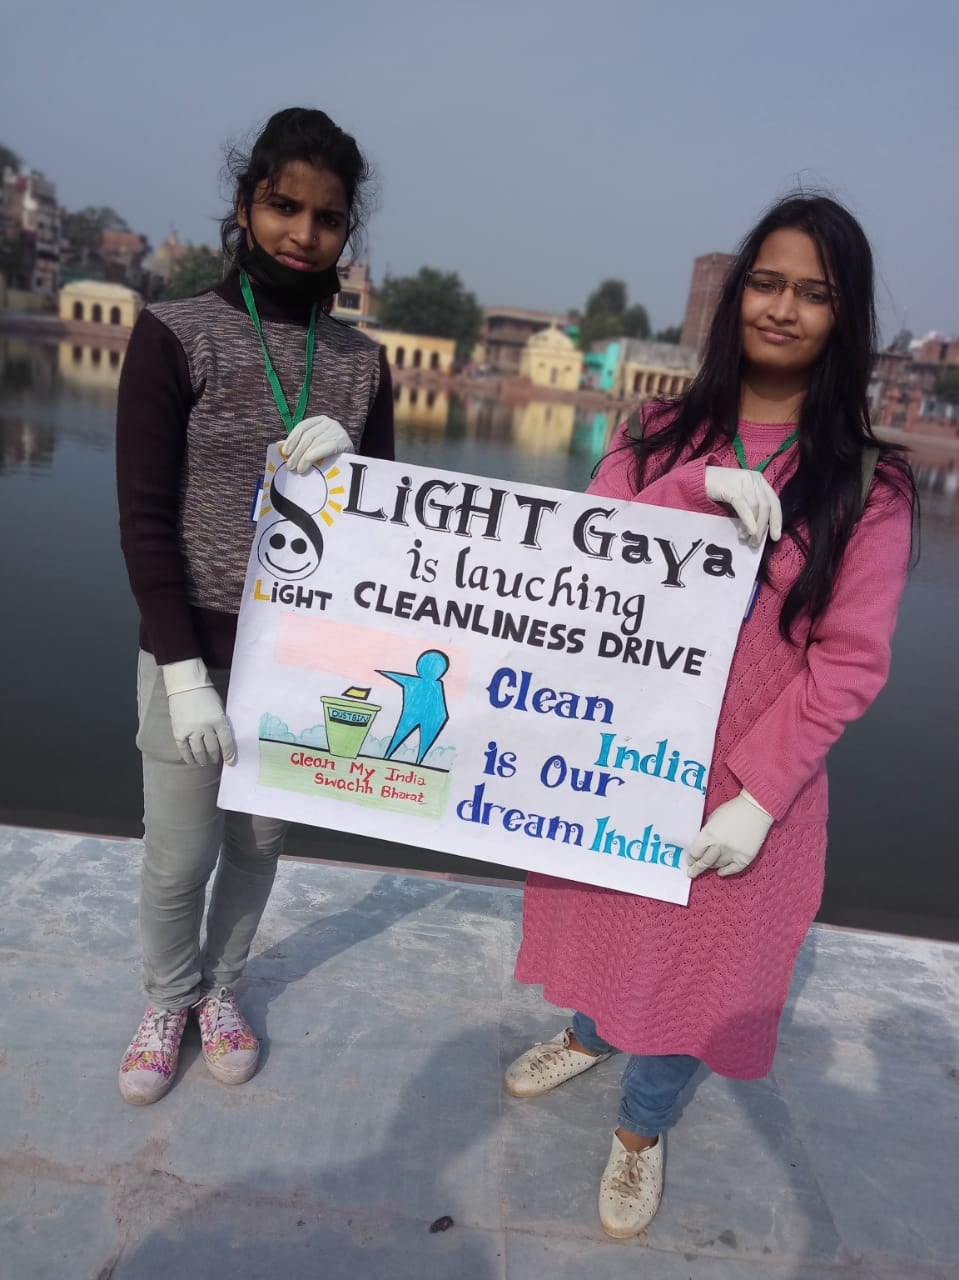 LiGHT GaYa
is lauching
CLEANLINESS DRIVE
LiGHT
DUSTBIN
Clean My India
Swachh Bharat
Clean
India,
is Our
dream India